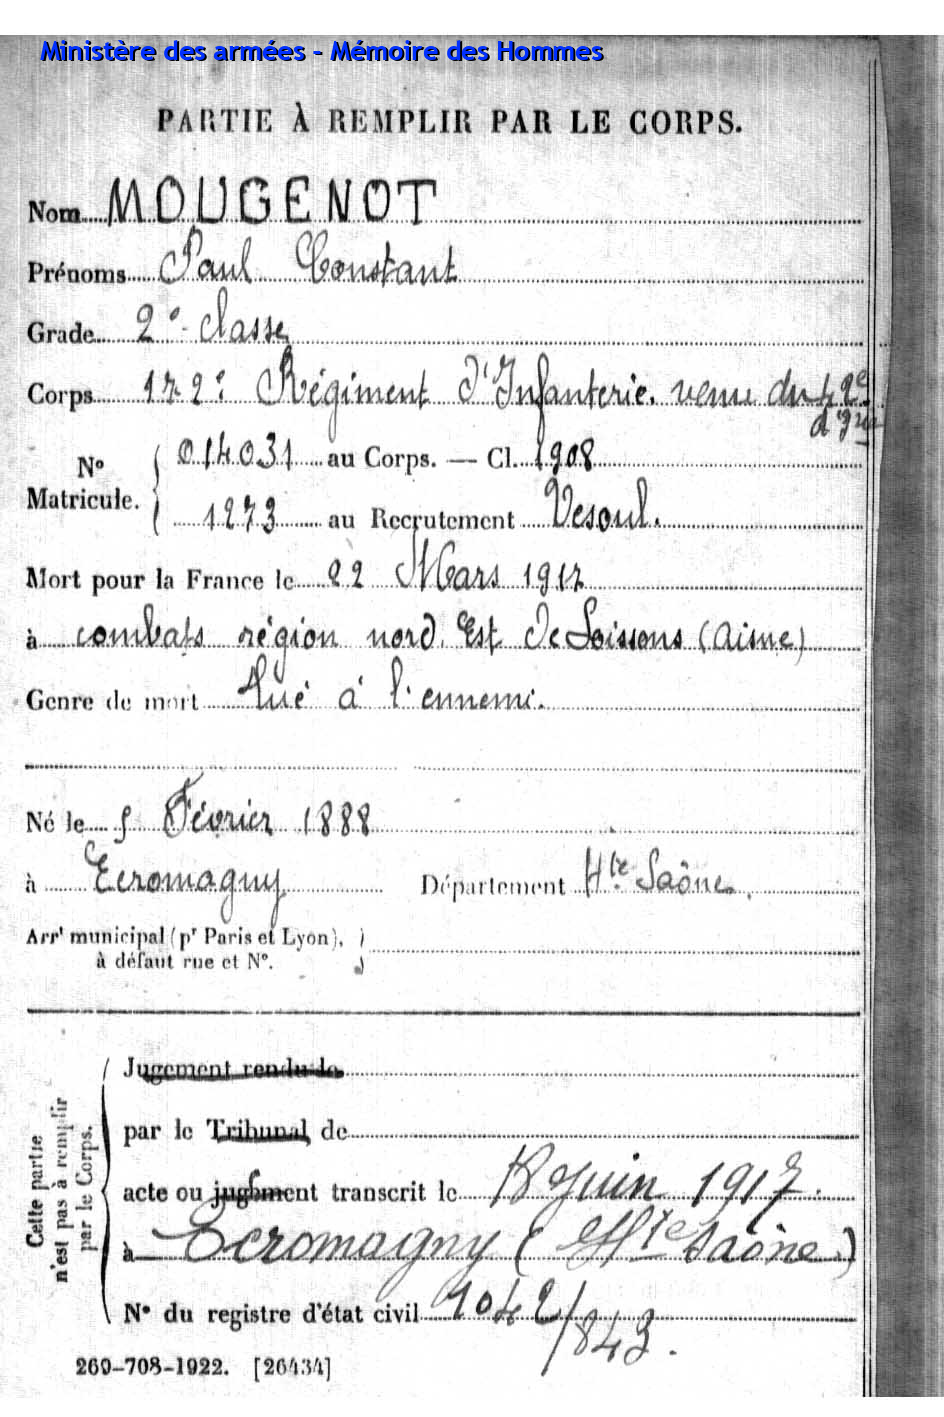 Ministère des armées - Mémoire des Hommes
PARTIE À REMPLIR PAR LE CORPS.
Nom MOUGENOT
Prénoms Paul Constant
Grade 2e classe
Corps 172e Régiment d'Infanterie. venu du 42e
d'Irie
No Matricule. 014031 au Corps. — Cl. 1908
1273 au Recrutement Vesoul.
Mort pour la France le 22 Mars 1917
à combats région nord. Est de Soissons (Aisne)
Genre de mort Tué à l'ennemi.
Né le 5 Février 1888
à Ecromagny Département Hte Saône.
Arrt municipal (pr Paris et Lyon),
à défaut rue et No.
Cette partie
n'est pas à remplir
par le Corps.
Jugement rendu le
par le Tribunal de
acte ou jugement transcrit le 18 Juin 1917.
à Ecromagny (Hte Saône)
No du registre d'état civil
/843.
260-708-1922. [26434]